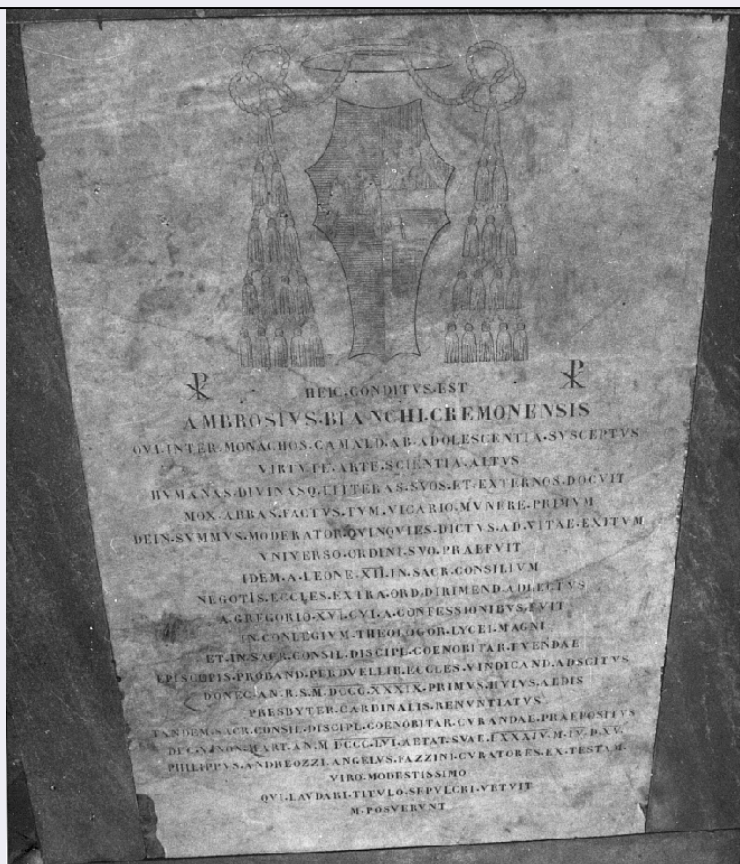 HEIC·CONDITVS·EST
AMBROSIVS·BIANCHI·CREMONENSIS
QVI·INTER·MONACHOS·CAMALD·AB·ADOLESCENTIA·SVSCEPTVS
VIRTVTE·ARTE·SCIENTIA·ALTVS
HVMANAS·DIVINASQ·LITTERAS·SVOS·ET·EXTERNOS·DOCVIT
MOX·ABBAS·FACTVS·TVM·VICARIO·MVNERE·PRIMVM
DEIN·SVMMVS·MODERATOR·QVINQVIES·DICTVS·AD·VITAE·EXITVM
VNIVERSO·ORDINI·SVO·PRAEFVIT
IDEM·A·LEONE·XII·IN·SACR·CONSILIVM
NEGOTIS·ECCLES·EXTRA·ORD·DIRIMEND·ADLECTVS
A·GREGORIO·XVI·CVI·A·CONFESSIONIBVS·FVIT
IN·CONLEGIVM·THEOLOGOR·LYCEI·MAGNI
ET·IN·SACR·CONSIL·DISCIPL·COENOBITAR·TVENDAE
EPISCOPIS·PROBAND·PERDVELLIB·ECCLES·VINDICAND·ADSCITVS
DONEC·AN·R·S·M·DCCC·XXXIX·PRIMVS·HVIVS·AEDIS
PRESBYTER·CARDINALIS·RENVNTIATVS
TANDEM·SACR·CONSIL·DISCIPL·COENOBITAR·CVRANDAE·PRAEPOSITVS
NON·MART·AN·M·DCCC·LVI·AETAT·SVAE·LXXXIV·M·IV·D·XV
PHILIPPVS·ANDREOZZI·ANGELVS·FAZZINI·CVRATORES·EX·TESTAM·
VIRO·MODESTISSIMO
QVI·LAVDARI·TITVLO·SEPVLCRI·VETVIT
M·POSVERVNT